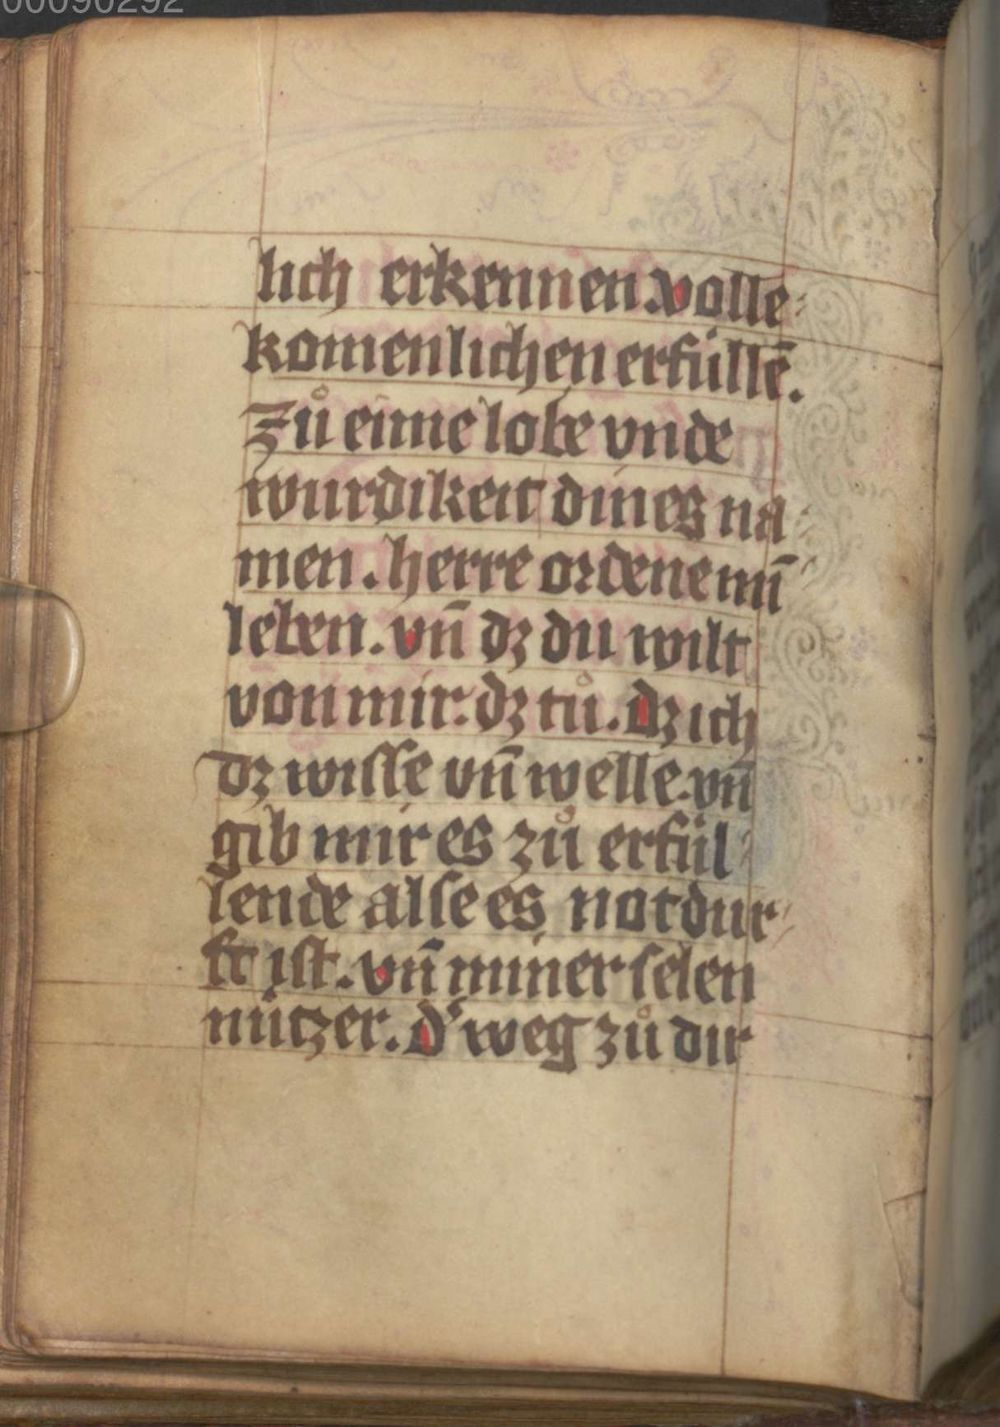 00090292
lich erkennen. volle⸗
komenlichen erfüllē.
Zů eime lobe vnde
wurdikeit dines na
men. herre ordene mī
leben. vn̄ dz du wilt
von mir. dz tů. dz ich
dz wisse vn̄ welle. vn̄
gib mir es zů erfül⸗
lende alse es notdur
ft ist. vn̄ miner selen
nützer. d' weg zů dir